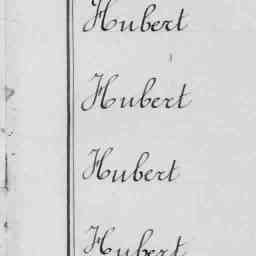 Hubert
Hubert
Hubert
Hubert